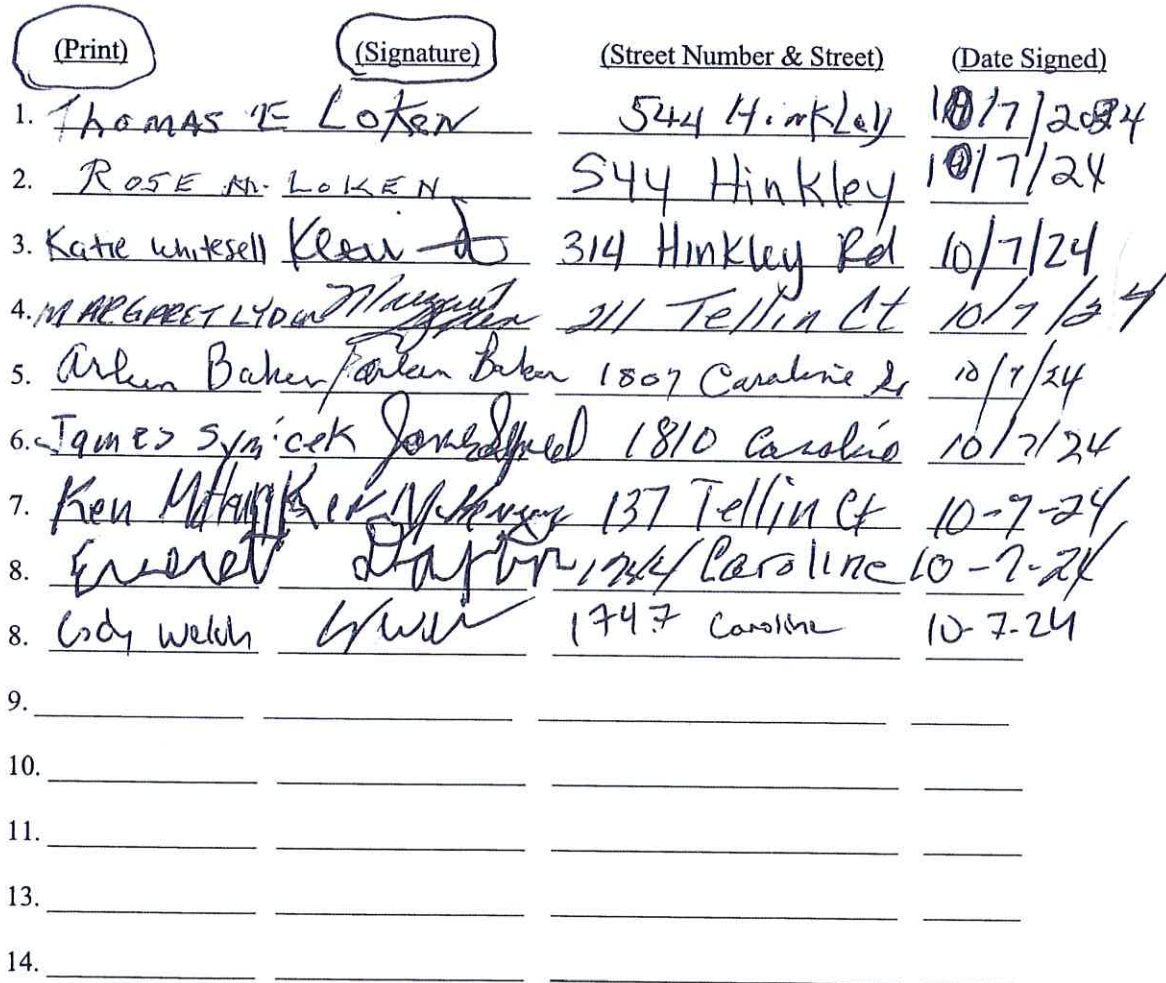 (Print) (Signature) (Street Number & Street) (Date Signed)
1. Thomas E Loken 544 Hinkley 10/7/2024
2. ROSE M. LOKEN 544 Hinkley 10/7/24
3. Katie Whitesell 314 Hinkley Rd 10/7/24
4. MARGARET LYDON Margaret 211 Tellin Ct 10/7/24
5. Arleen Baker Arleen Baker 1807 Caroline 10/7/24
6. James 1810 Caroline 10/7/24
7. Ken 137 Tellin Ct 10-7-24
8. Caroline 10-7-24
8. Cody Welch 1747 Caroline 10-7-24
9.
10.
11.
13.
14.